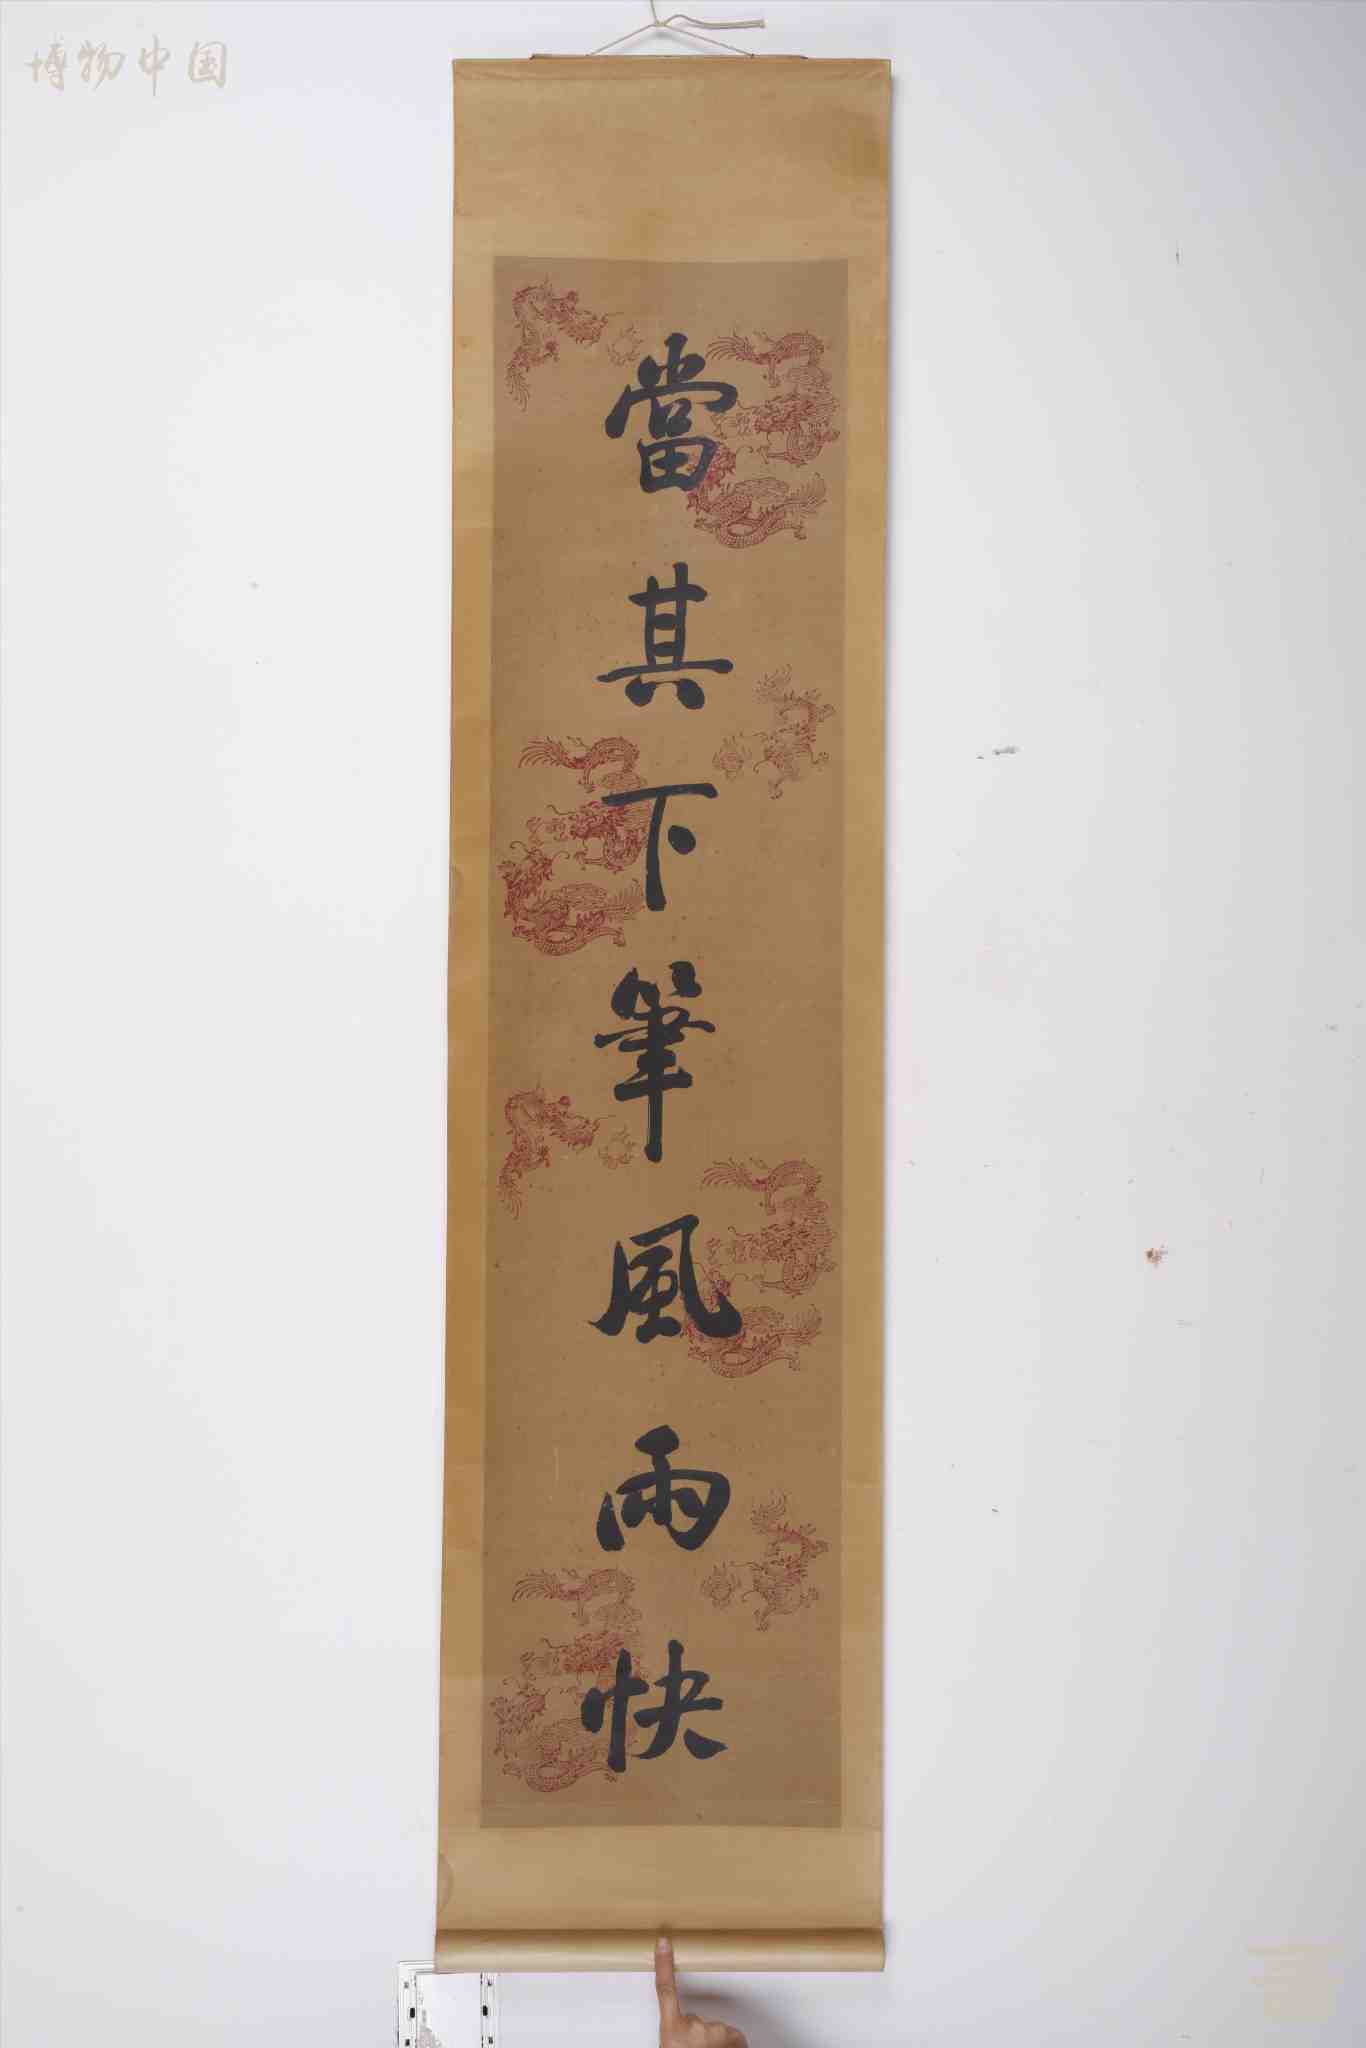 博物中国
當其下筆風雨快